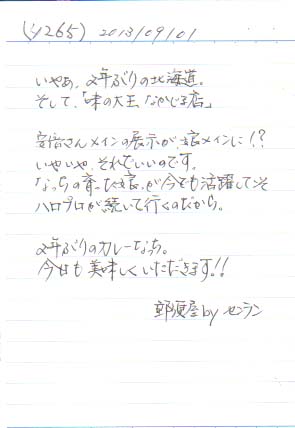 (y265) 2013/09/01
いやぁ、2年ぶりの北海道。
そして、「味の大王 なかじま店」
安倍さんメインの展示が、娘メインに!?
いやいや、それでいいのです。
なっちの育った娘。が今でも活躍してこそ
ハロプロが続いて行くのだから。
2年ぶりのカレーなっち。
今日も美味しくいただきます!!
郵便屋 by センラン